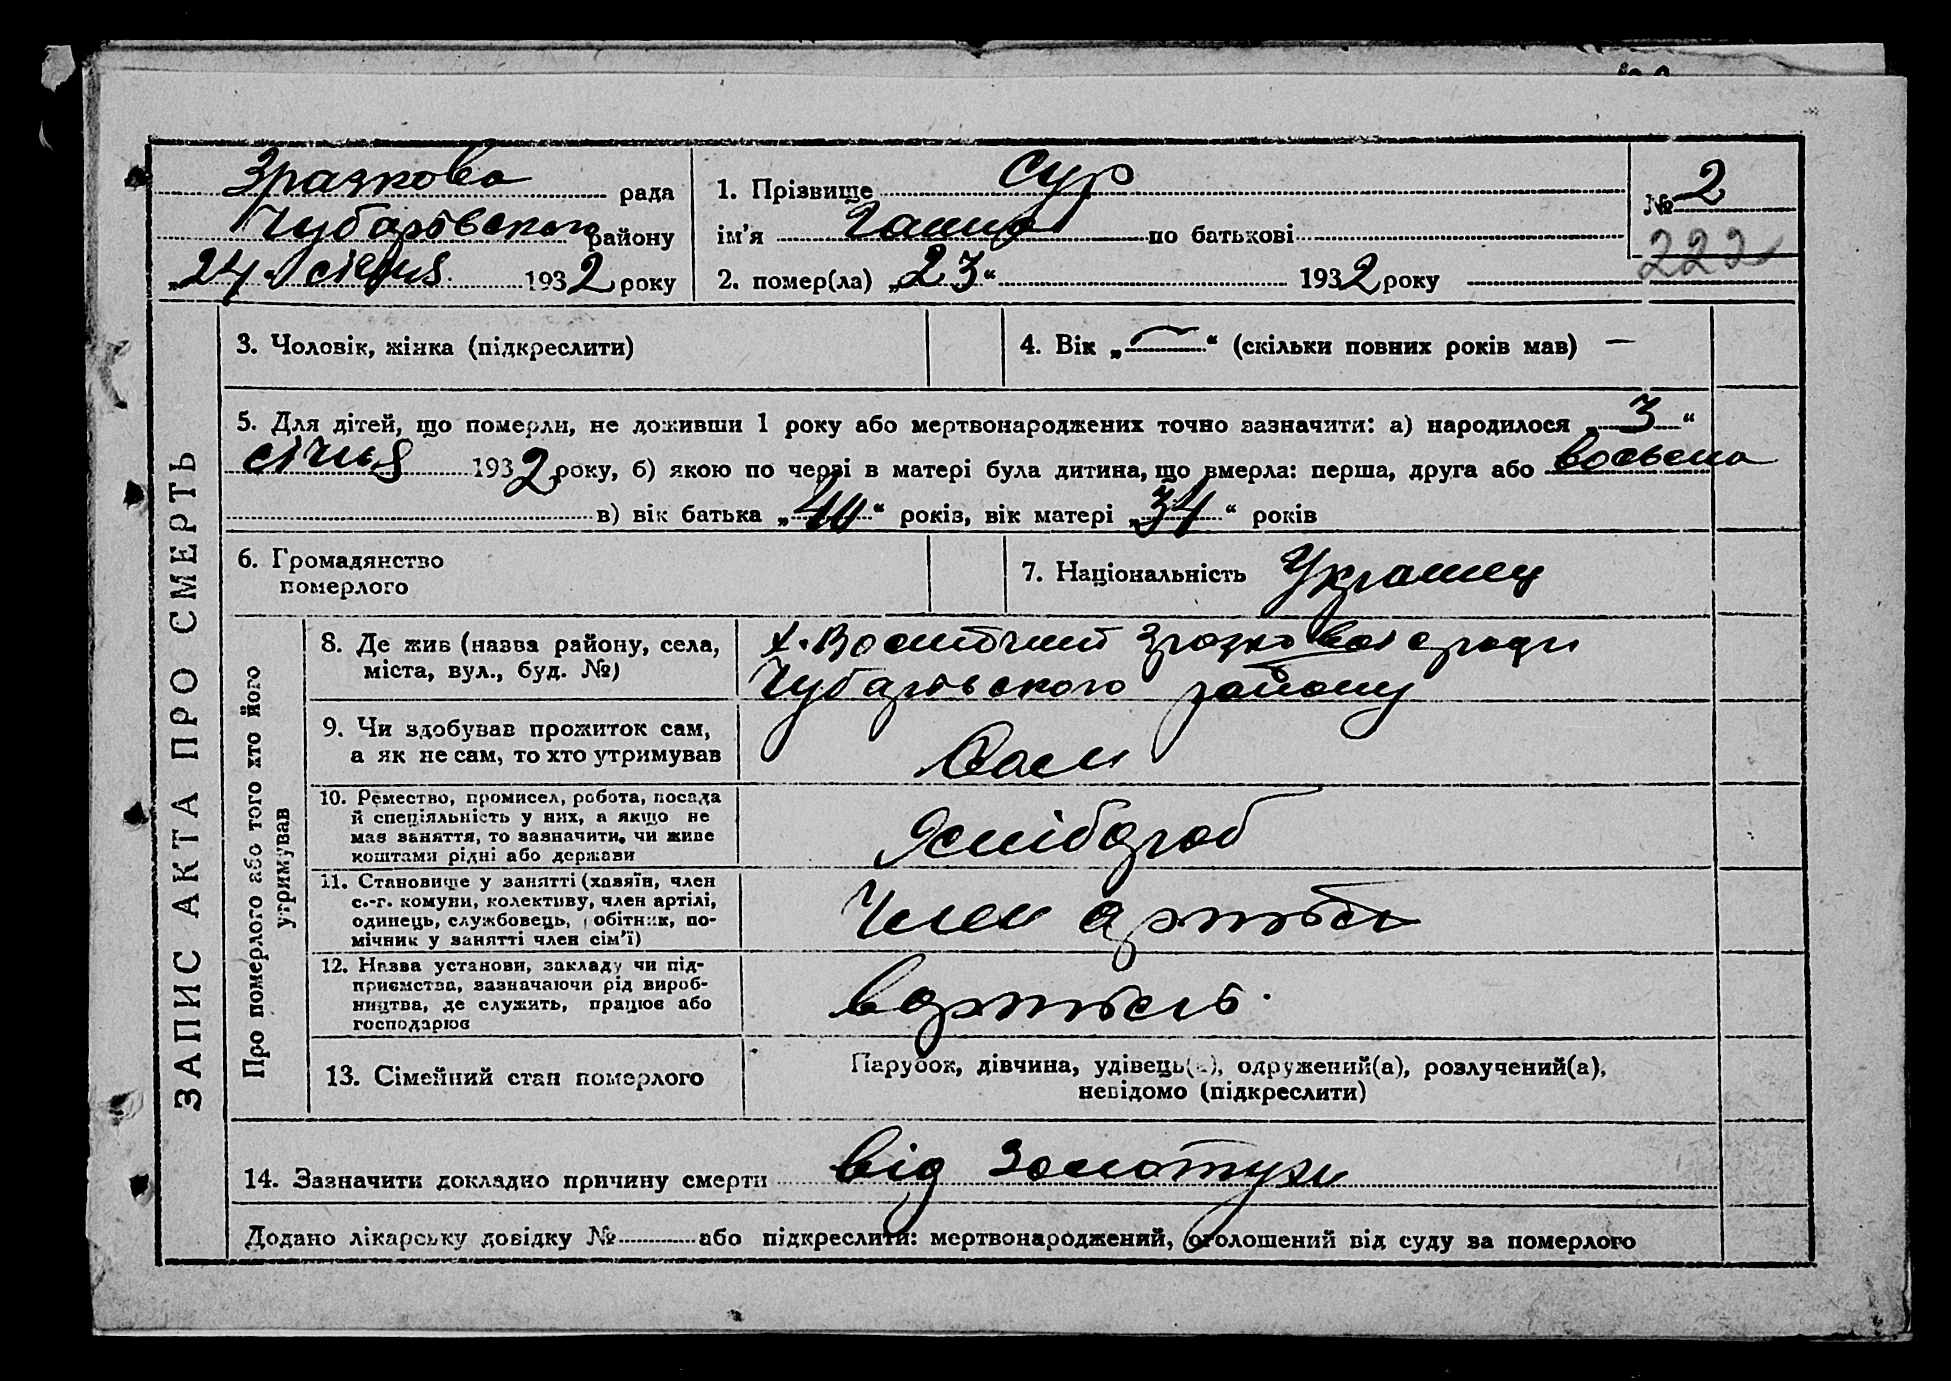 Зразкова рада
Чубарівського району
„24“ січня 1932 року
1. Прізвище Сур
ім'я Ганна по батькові
2. помер(ла) „23“ 1932 року
№ 2
222
ЗАПИС АКТА ПРО СМЕРТЬ
3. Чоловік, жінка (підкреслити)
4. Вік „—“ (скільки повних років мав) —
5. Для дітей, що померли, не доживши 1 року або мертвонароджених точно зазначити: а) народилося „3“
січня 1932 року, б) якою по черзі в матері була дитина, що вмерла: перша, друга або восьма
в) вік батька „40“ років, вік матері „34“ років
6. Громадянство
померлого
7. Національність Украінец
Про померлого або того хто його
утримував
8. Де жив (назва району, села,
міста, вул., буд. №)
х. Зразковоі ради
Чубарівського району
9. Чи здобував прожиток сам,
а як не сам, то хто утримував
10. Ремество, промисел, робота, посада
й спеціяльність у них, а якщо не
мав заняття, то зазначити, чи живе
коштами рідні або держави
Хлібороб
11. Становище у занятті (хазяїн, член
с.-г. комуни, колективу, член артілі,
одинець, службовець, робітник, по-
мічник у занятті член сім'ї)
Член артілі
12. Назва установи, закладу чи під-
приємства, зазначаючи рід вироб-
ництва, де служить, працює або
господарює
в артілі
13. Сімейний стан померлого
Парубок, дівчина, удівець(а), одружений(а), розлучений(а),
невідомо (підкреслити)
14. Зазначити докладно причину смерти від Золотухи
Додано лікарську довідку № або підкреслити: мертвонароджений, оголошений від суду за померлого